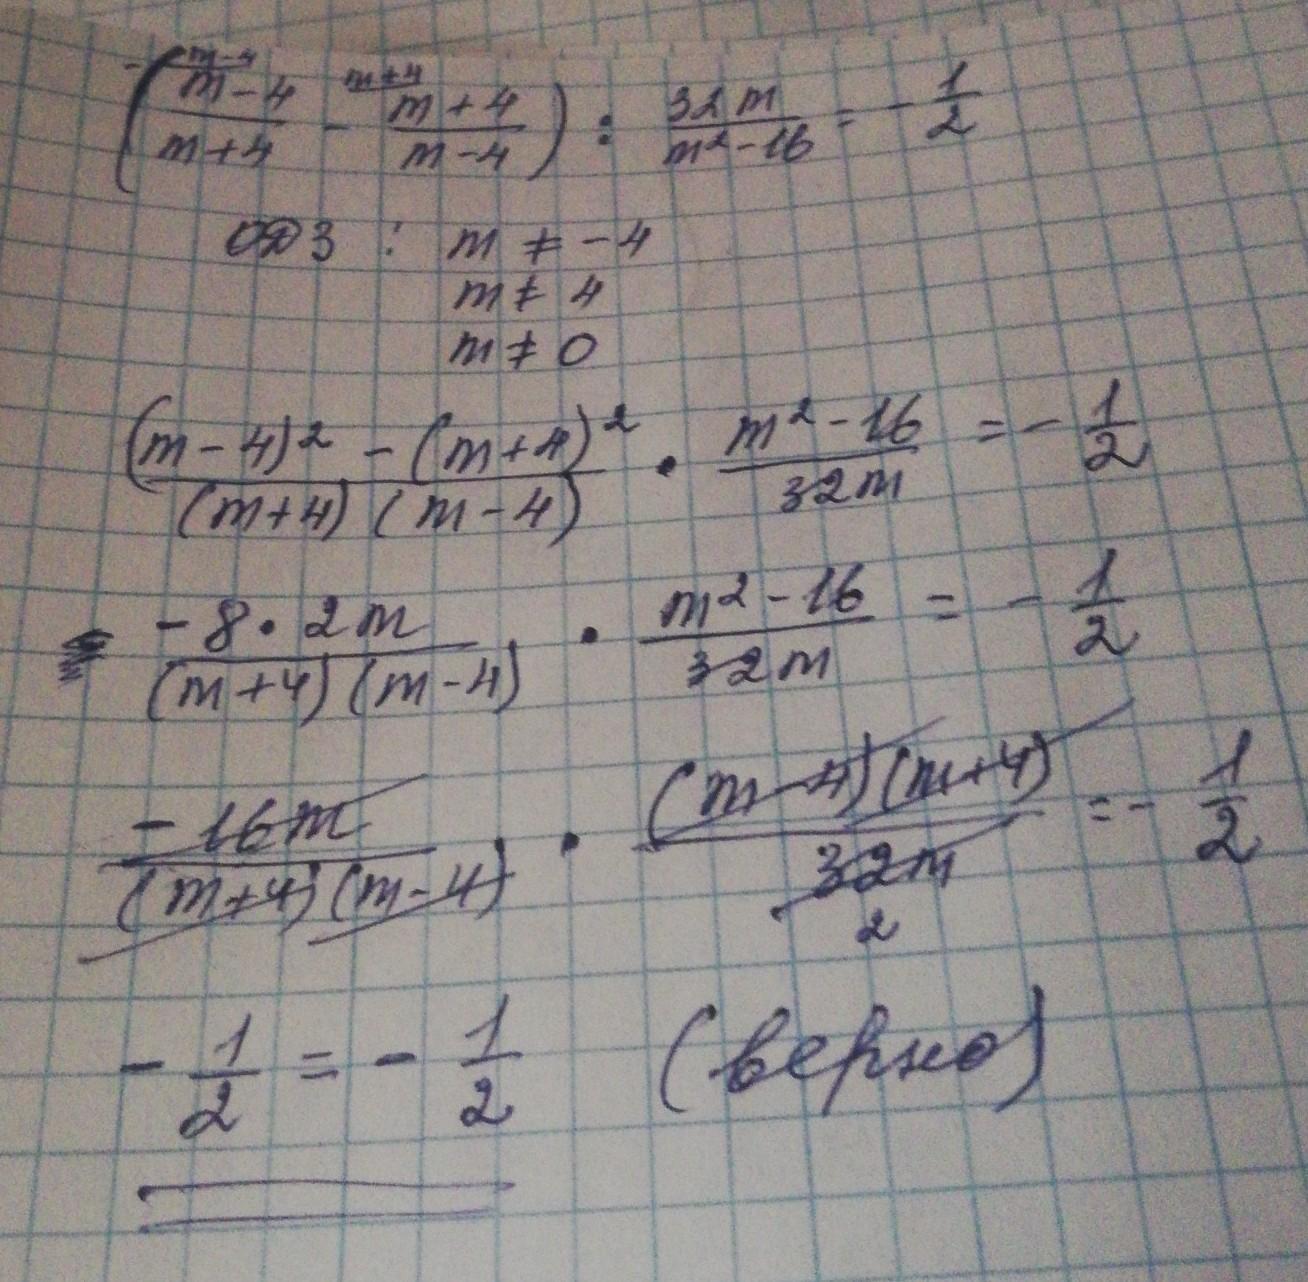 ((m-4)/(m+4) - (m+4)/(m-4)) : 32m/(m²-16) = -1/2
ОДЗ : m ≠ -4
m ≠ 4
m ≠ 0
((m-4)² - (m+4)²)/((m+4)(m-4)) · (m²-16)/(32m) = -1/2
(-8·2m)/((m+4)(m-4)) · (m²-16)/(32m) = -1/2
(-16m)/((m+4)(m-4)) · ((m-4)(m+4))/(32m) = -1/2
2
-1/2 = -1/2 (верно)